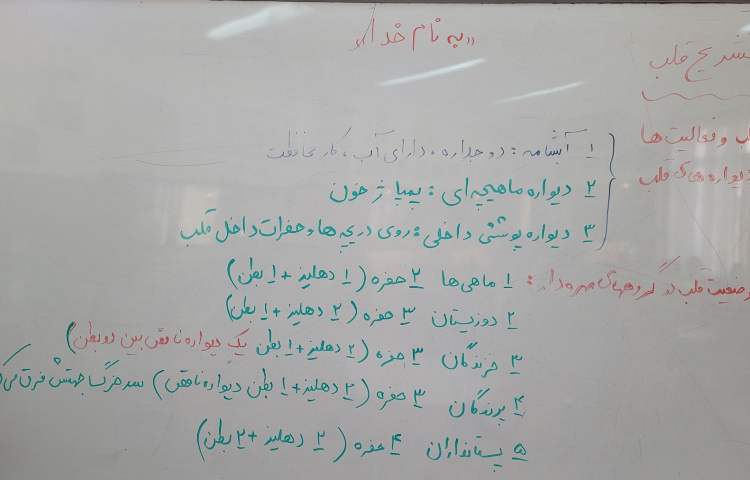 «به نام خدا»
تشریح قلب
و فعالیت‌ها
دیواره‌های قلب
۱ آبشامه : دو جداره ، دارای آب ، کار محافظت
۲ دیواره ماهیچه‌ای : پمپاژ خون
۳ دیواره پوششی داخلی : روی دریچه‌ها و حفرات داخل قلب
وضعیت قلب در گروههای مهره‌دار :
۱ ماهی‌ها ۲ حفره (۱ دهلیز + ۱ بطن)
۲ دوزیستان ۳ حفره (۲ دهلیز + ۱ بطن)
۳ خزندگان ۳ حفره (۲ دهلیز + ۱ بطن یک دیواره ناقص بین دو بطن)
۴ پرندگان ۳ حفره (۲ دهلیز + ۱ بطن دیواره ناقص) سرخرگ جهتش فرق می‌ک
۵ پستانداران ۴ حفره (۲ دهلیز + ۲ بطن)